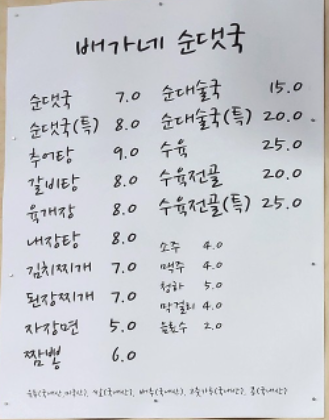 배가네 순댓국
순댓국 7.0
순댓국(특) 8.0
추어탕 9.0
갈비탕 8.0
육개장 8.0
내장탕 8.0
김치찌개 7.0
된장찌개 7.0
자장면 5.0
짬뽕 6.0
순대술국 15.0
순대술국(특) 20.0
수육 25.0
수육전골 20.0
수육전골(특) 25.0
소주 4.0
맥주 4.0
청하 5.0
막걸리 4.0
음료수 2.0
(국내산), (국내산), (국내산), 고춧가루(국내산), (국내산)